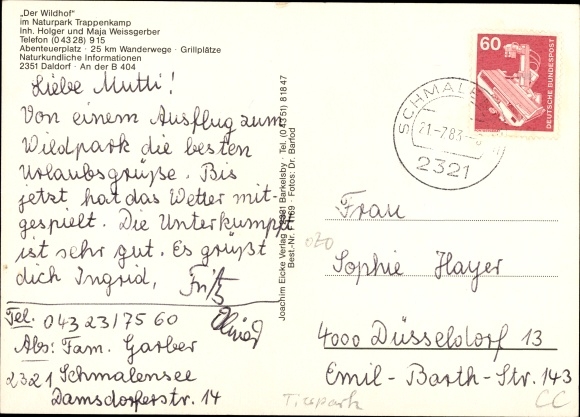 „Der Wildhof"
im Naturpark Trappenkamp
Inh. Holger und Maja Weissgerber
Telefon (0 43 28) 9 15
Abenteuerplatz · 25 km Wanderwege · Grillplätze
Naturkundliche Informationen
2351 Daldorf · An der B 404
Liebe Mutti!
Von einem Ausflug zum
Wildpark die besten
Urlaubsgrüße. Bis
jetzt hat das Wetter mit-
gespielt. Die Unterkunft
ist sehr gut. Es grüßt
dich Ingrid, Fritz
Tel. 04323/7560
Abs: Fam. Garber
2321 Schmalensee
Damsdorferstr. 14
Joachim Eicke Verlag 2331 Barkelsby · Tel. (0 43 51) 8 18 47
Best.-Nr. 1169 · Fotos: Dr. Barfod
60
DEUTSCHE BUNDESPOST
21-7.83
2321
Frau
Sophie Hayer
4000 Düsseldorf 13
Emil-Barth-Str. 143
Tierpark
CC